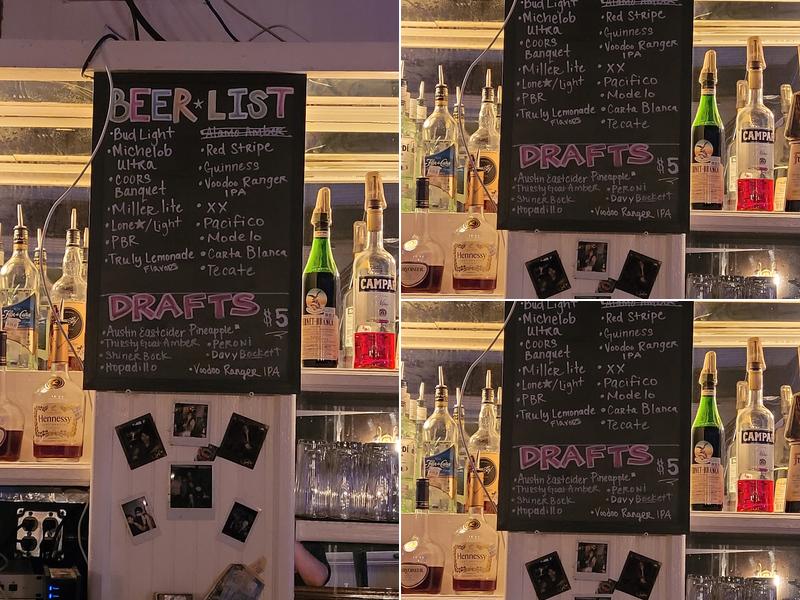 BEER★LIST
Bud Light
Michelob
Ultra
COORS
Banquet
Miller lite
Lone★/light
PBR
Truly Lemonade
Flavors
Alamo Amber
Red Stripe
Guinness
Voodoo Ranger
IPA
XX
Pacifico
Modelo
Carta Blanca
Tecate
DRAFTS $5
Austin Eastcider Pineapple
Thirsty Goat Amber
Shiner Bock
Hopadillo
PERONI
Davy Bockett
Voodoo Ranger IPA
Hennessy
CAMPA
Michelob
Ultra
COORS
Banquet
Miller lite
Lone★/light
PBR
Truly Lemonade
Flavors
Red Stripe
Guinness
Voodoo Ranger
IPA
XX
Pacifico
Modelo
Carta Blanca
Tecate
DRAFTS $5
Austin Eastcider Pineapple
Thirsty Goat Amber
Shiner Bock
Hopadillo
PERONI
Davy Bockett
Voodoo Ranger IPA
Hennessy
CAMPA
Bud Light
Michelob
Ultra
COORS
Banquet
Miller lite
Lone★/light
PBR
Truly Lemonade
Flavors
Red Stripe
Guinness
Voodoo Ranger
IPA
XX
Pacifico
Modelo
Carta Blanca
Tecate
DRAFTS $5
Austin Eastcider Pineapple
Thirsty Goat Amber
Shiner Bock
Hopadillo
PERONI
Davy Bockett
Voodoo Ranger IPA
Hennessy
CAMPA